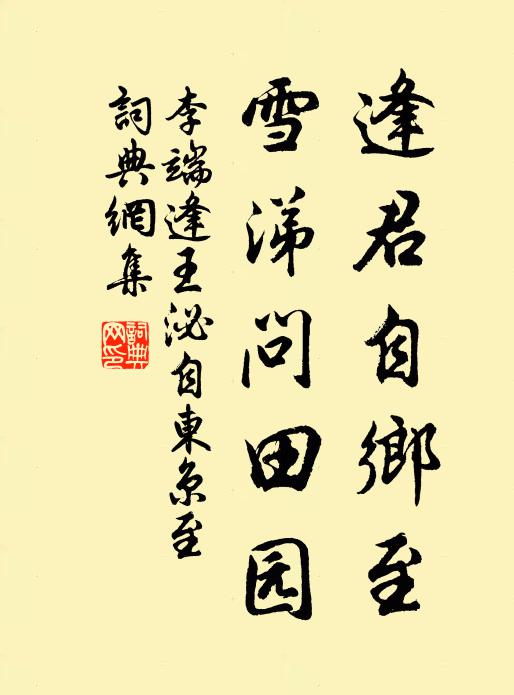 逢君自鄉至
雪涕问田园
李端逢王泌自東京至
詞典網集
詞典网印